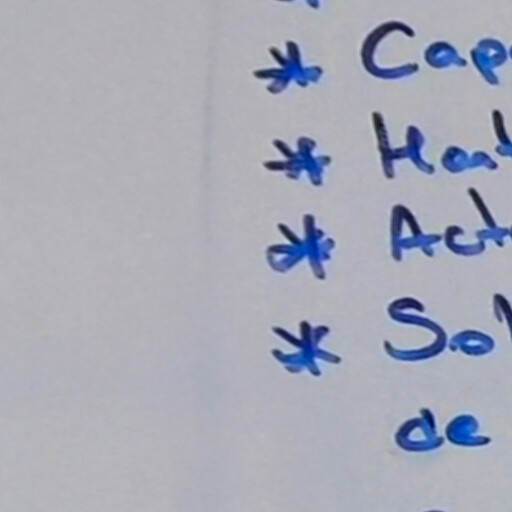 * Cap
* Hab
* Act
* Sol
de